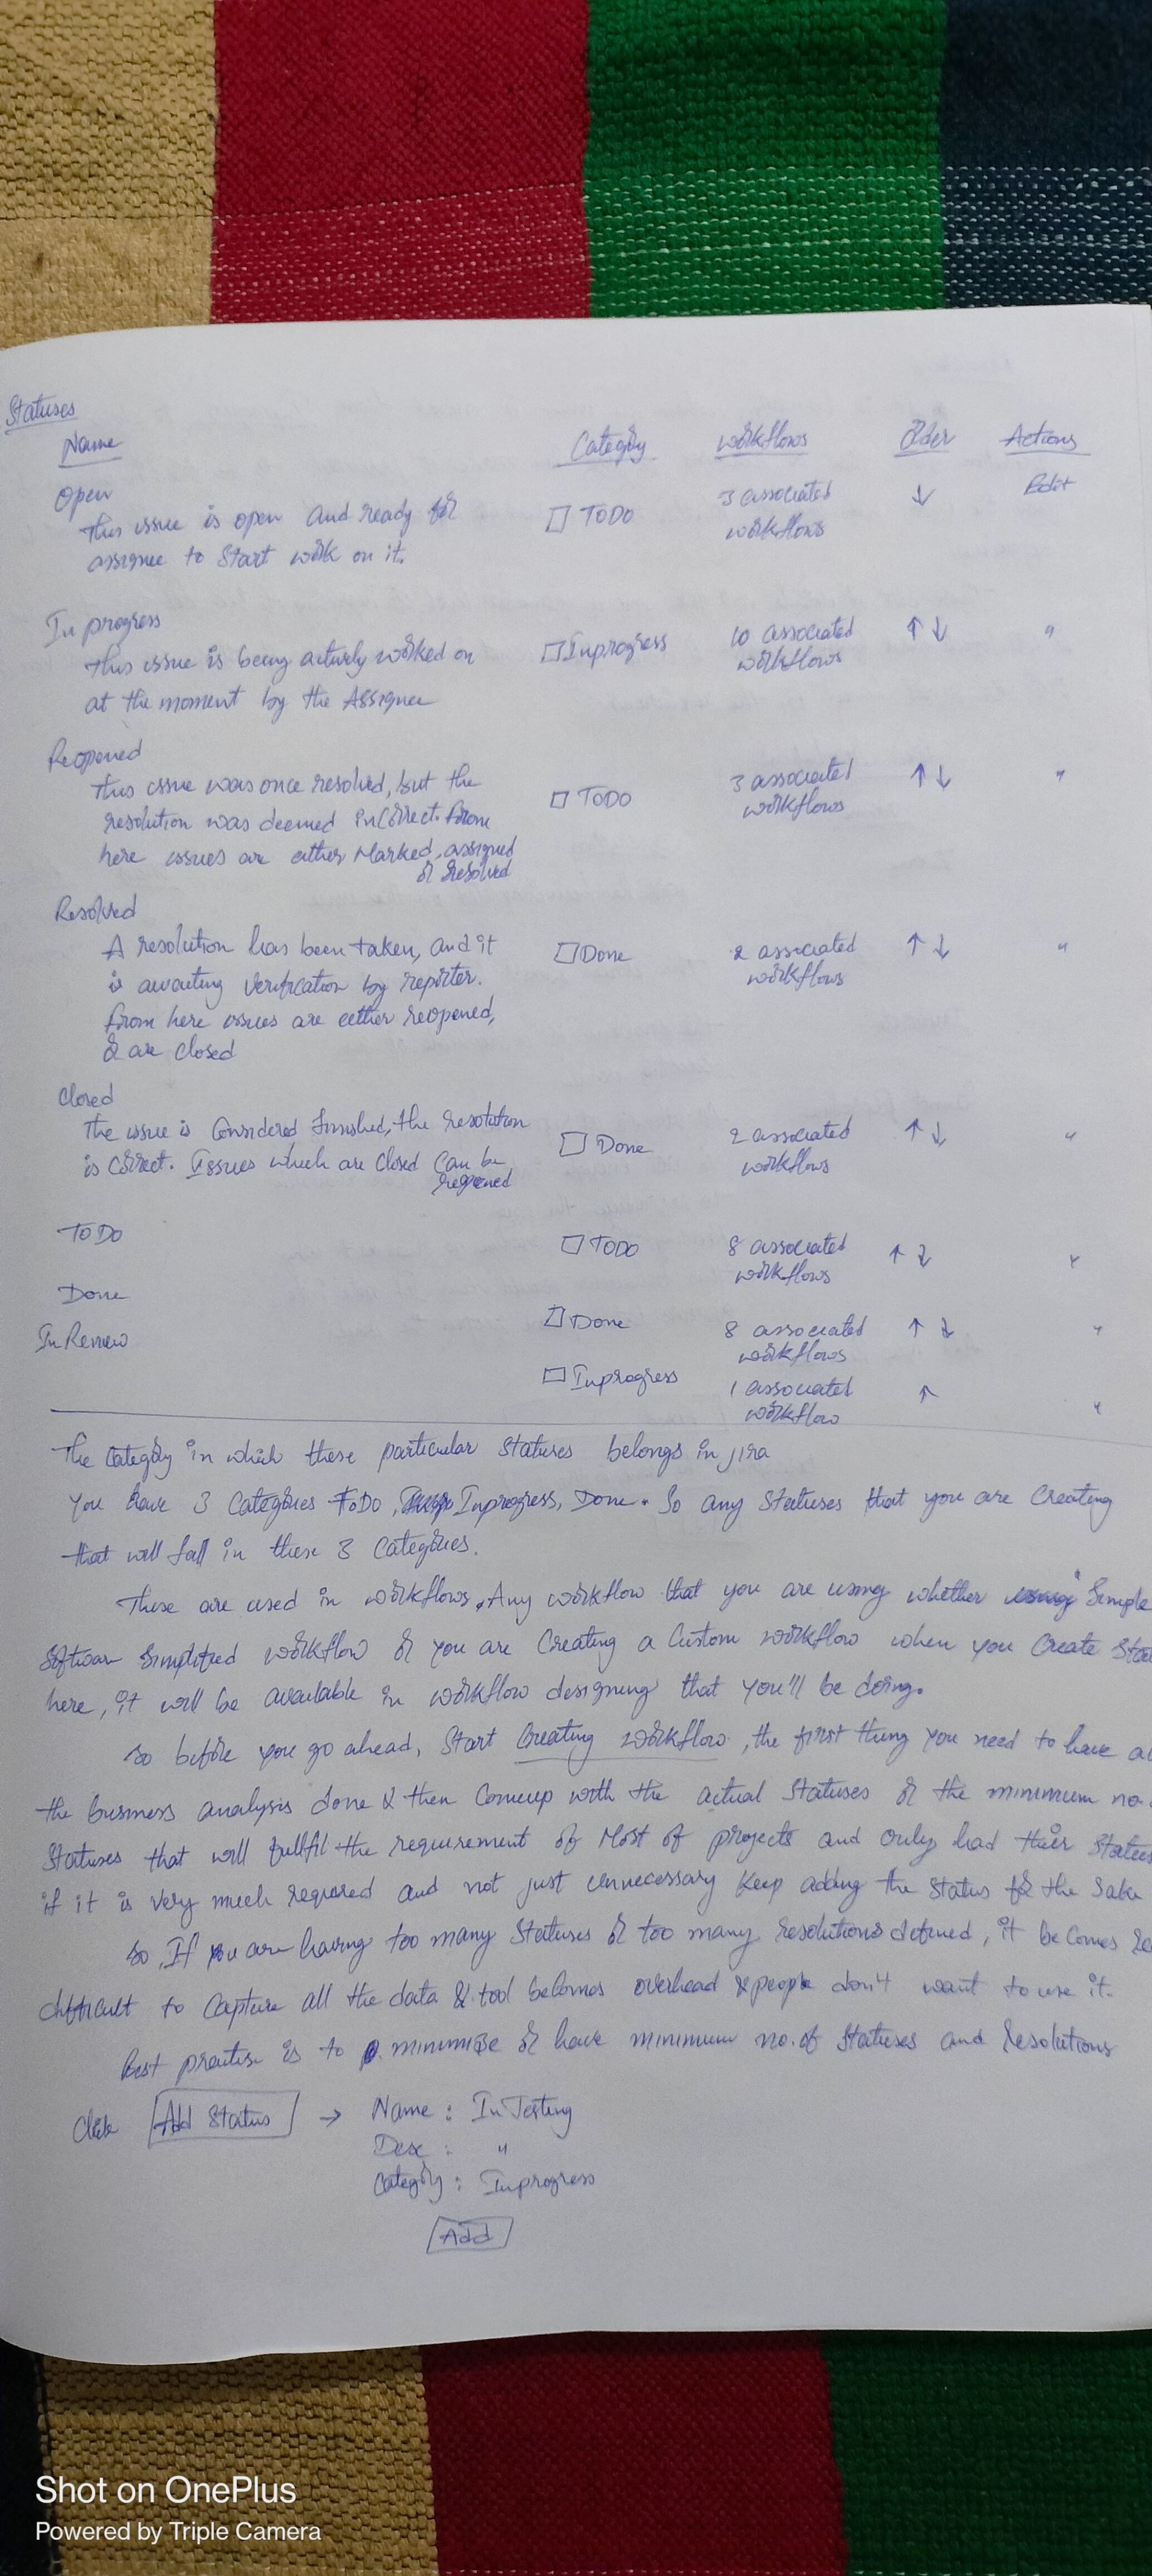 Statuses
Name Category Workflows Order Actions
Open
This issue is open and ready for
assignee to start work on it.
☐ ToDo
3 associated
workflows
↓
Edit
In progress
This issue is being actively worked on
at the moment by the Assignee
☐ Inprogress
10 associated
workflows
↑ ↓
"
Reopened
This issue was once resolved, but the
resolution was deemed incorrect. From
here issues are either Marked, assigned
or resolved
☐ ToDo
3 associated
workflows
↑ ↓
"
Resolved
A resolution has been taken, and it
is awaiting verification by reporter.
From here issues are either reopened,
or are closed
☐ Done
2 associated
workflows
↑ ↓
"
Closed
The issue is Considered finished, the resolution
is correct. Issues which are closed can be
reopened
☐ Done
2 associated
workflows
↑ ↓
"
ToDo
☐ ToDo
8 associated
workflows
↑ ↓
"
Done
☐ Done
8 associated
workflows
↑ ↓
"
In Review
☐ Inprogress
1 associated
workflow
↑
"
The Category in which these particular statuses belongs in jira
You have 3 categories ToDo, Inprogress, Done. So any statuses that you are creating
that will fall in these 3 categories.
These are used in workflows. Any workflow that you are using whether using Simple
Software Simplified workflow or you are Creating a Custom workflow when you Create
here, it will be available in workflow designing that you'll be doing.
So before you go ahead, start Creating workflow, the first thing you need to have
the business analysis done & then comeup with the actual statuses or the minimum no.
Statuses that will fullfil the requirement of Most of projects and only had their
if it is very much required and not just unnecessary keep adding the status for the sake
So, If you are having too many statuses or too many resolutions defined, it becomes
difficult to capture all the data & tool becomes overhead & people don't want to use it.
Best practise is to minimise or have minimum no. of statuses and resolutions
Click Add Status → Name : In Testing
Desc : "
Category : Inprogress
Add
Shot on OnePlus
Powered by Triple Camera